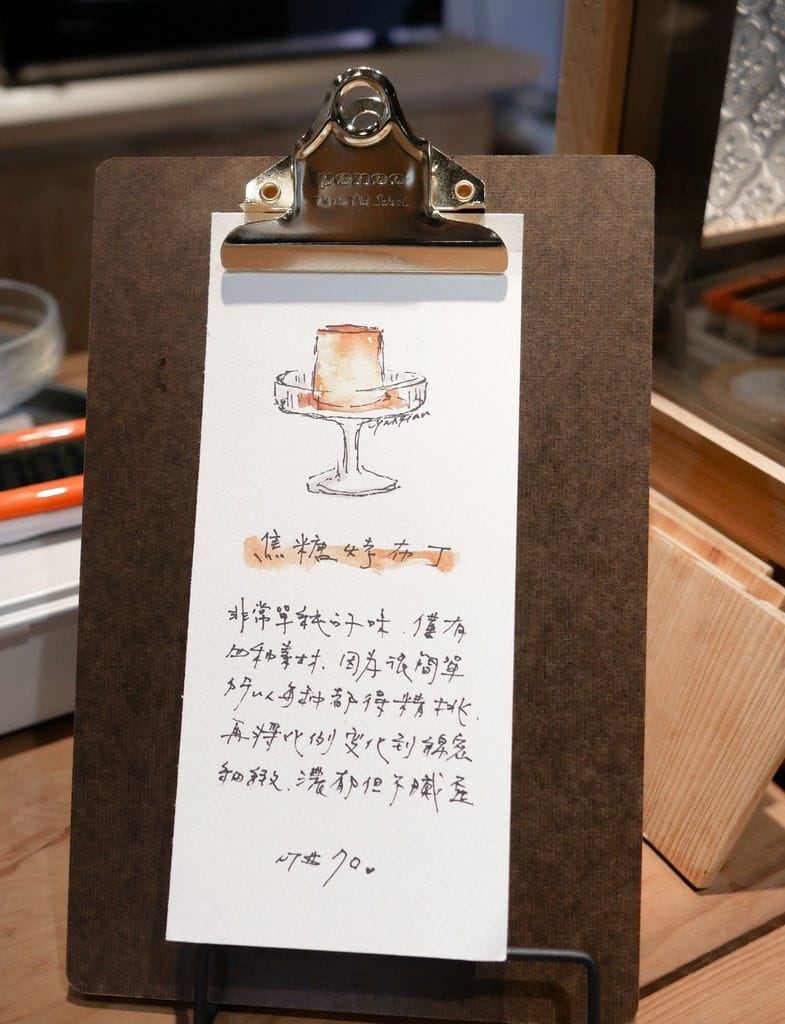 penco
焦糖烤布丁
非常單純的好味、僅有
四種素材、因為很簡單
所以每種都得精挑、
再將比例變化到綿密
細緻、濃郁但不膩
NT# 70.